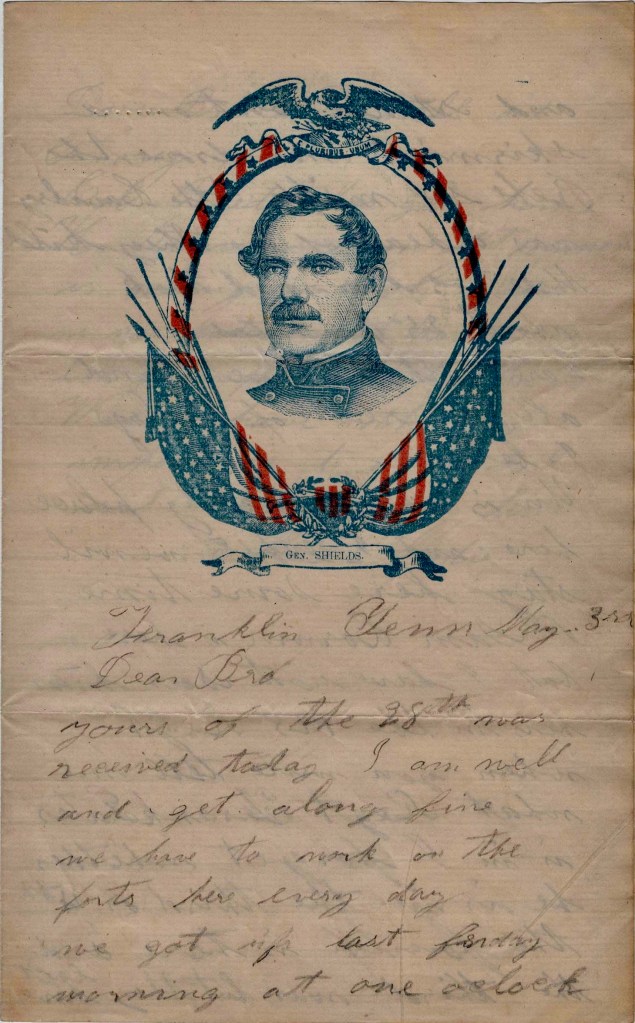 E PLURIBUS UNUM
GEN. SHIELDS.
Franklin Tenn May 3rd
Dear Bro
yours of the 28th was
received today I am well
and get along fine
we have to work on the
forts here every day
we got up last friday
morning at one oclock